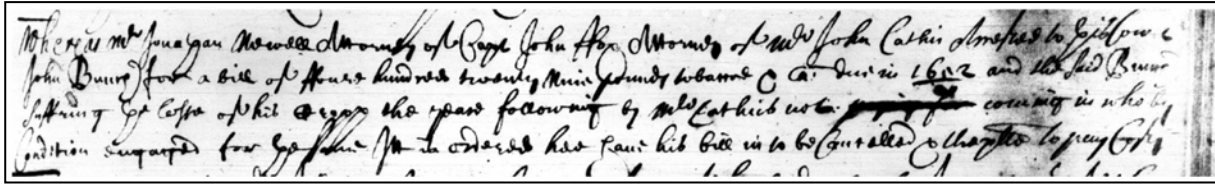 Whereas mr Jonathan Newell Attorney of Capt John ffox Attorney of mr John Cathis Arrested to this Cour
John Bunn for a bill of ffoure hundred twenty Nine pounds tobaccoe & Ca: due in 1652 and the said Bunn
Suffering ye losse of his Cropp the yeare following by mr Cathis not coming in who by
Condition engaged for ye same Itt is ordered hee have his bill in to be Cancelled & the to pay